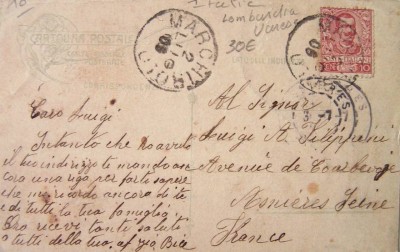 Italia
Lombardia
Varese
30€
10
CARTOLINA POSTALE
MARCHIROLO
2
LUG
06
10
Caro Luigi
Intanto che ho avuto
il tuo indirizzo ti mando an
cora una riga per farti sapere
che mi ricordo ancora di te
e di tutti la tua famiglia
Ora ricevi tante saluti
a tutti della tua, aff
Bice
Al Signor
Luigi A. Filippani
Avenue de Courbevoie
Asnières Seine
France